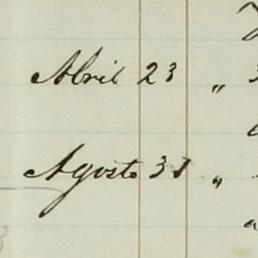 Abril 23 "
Agosto 31 "